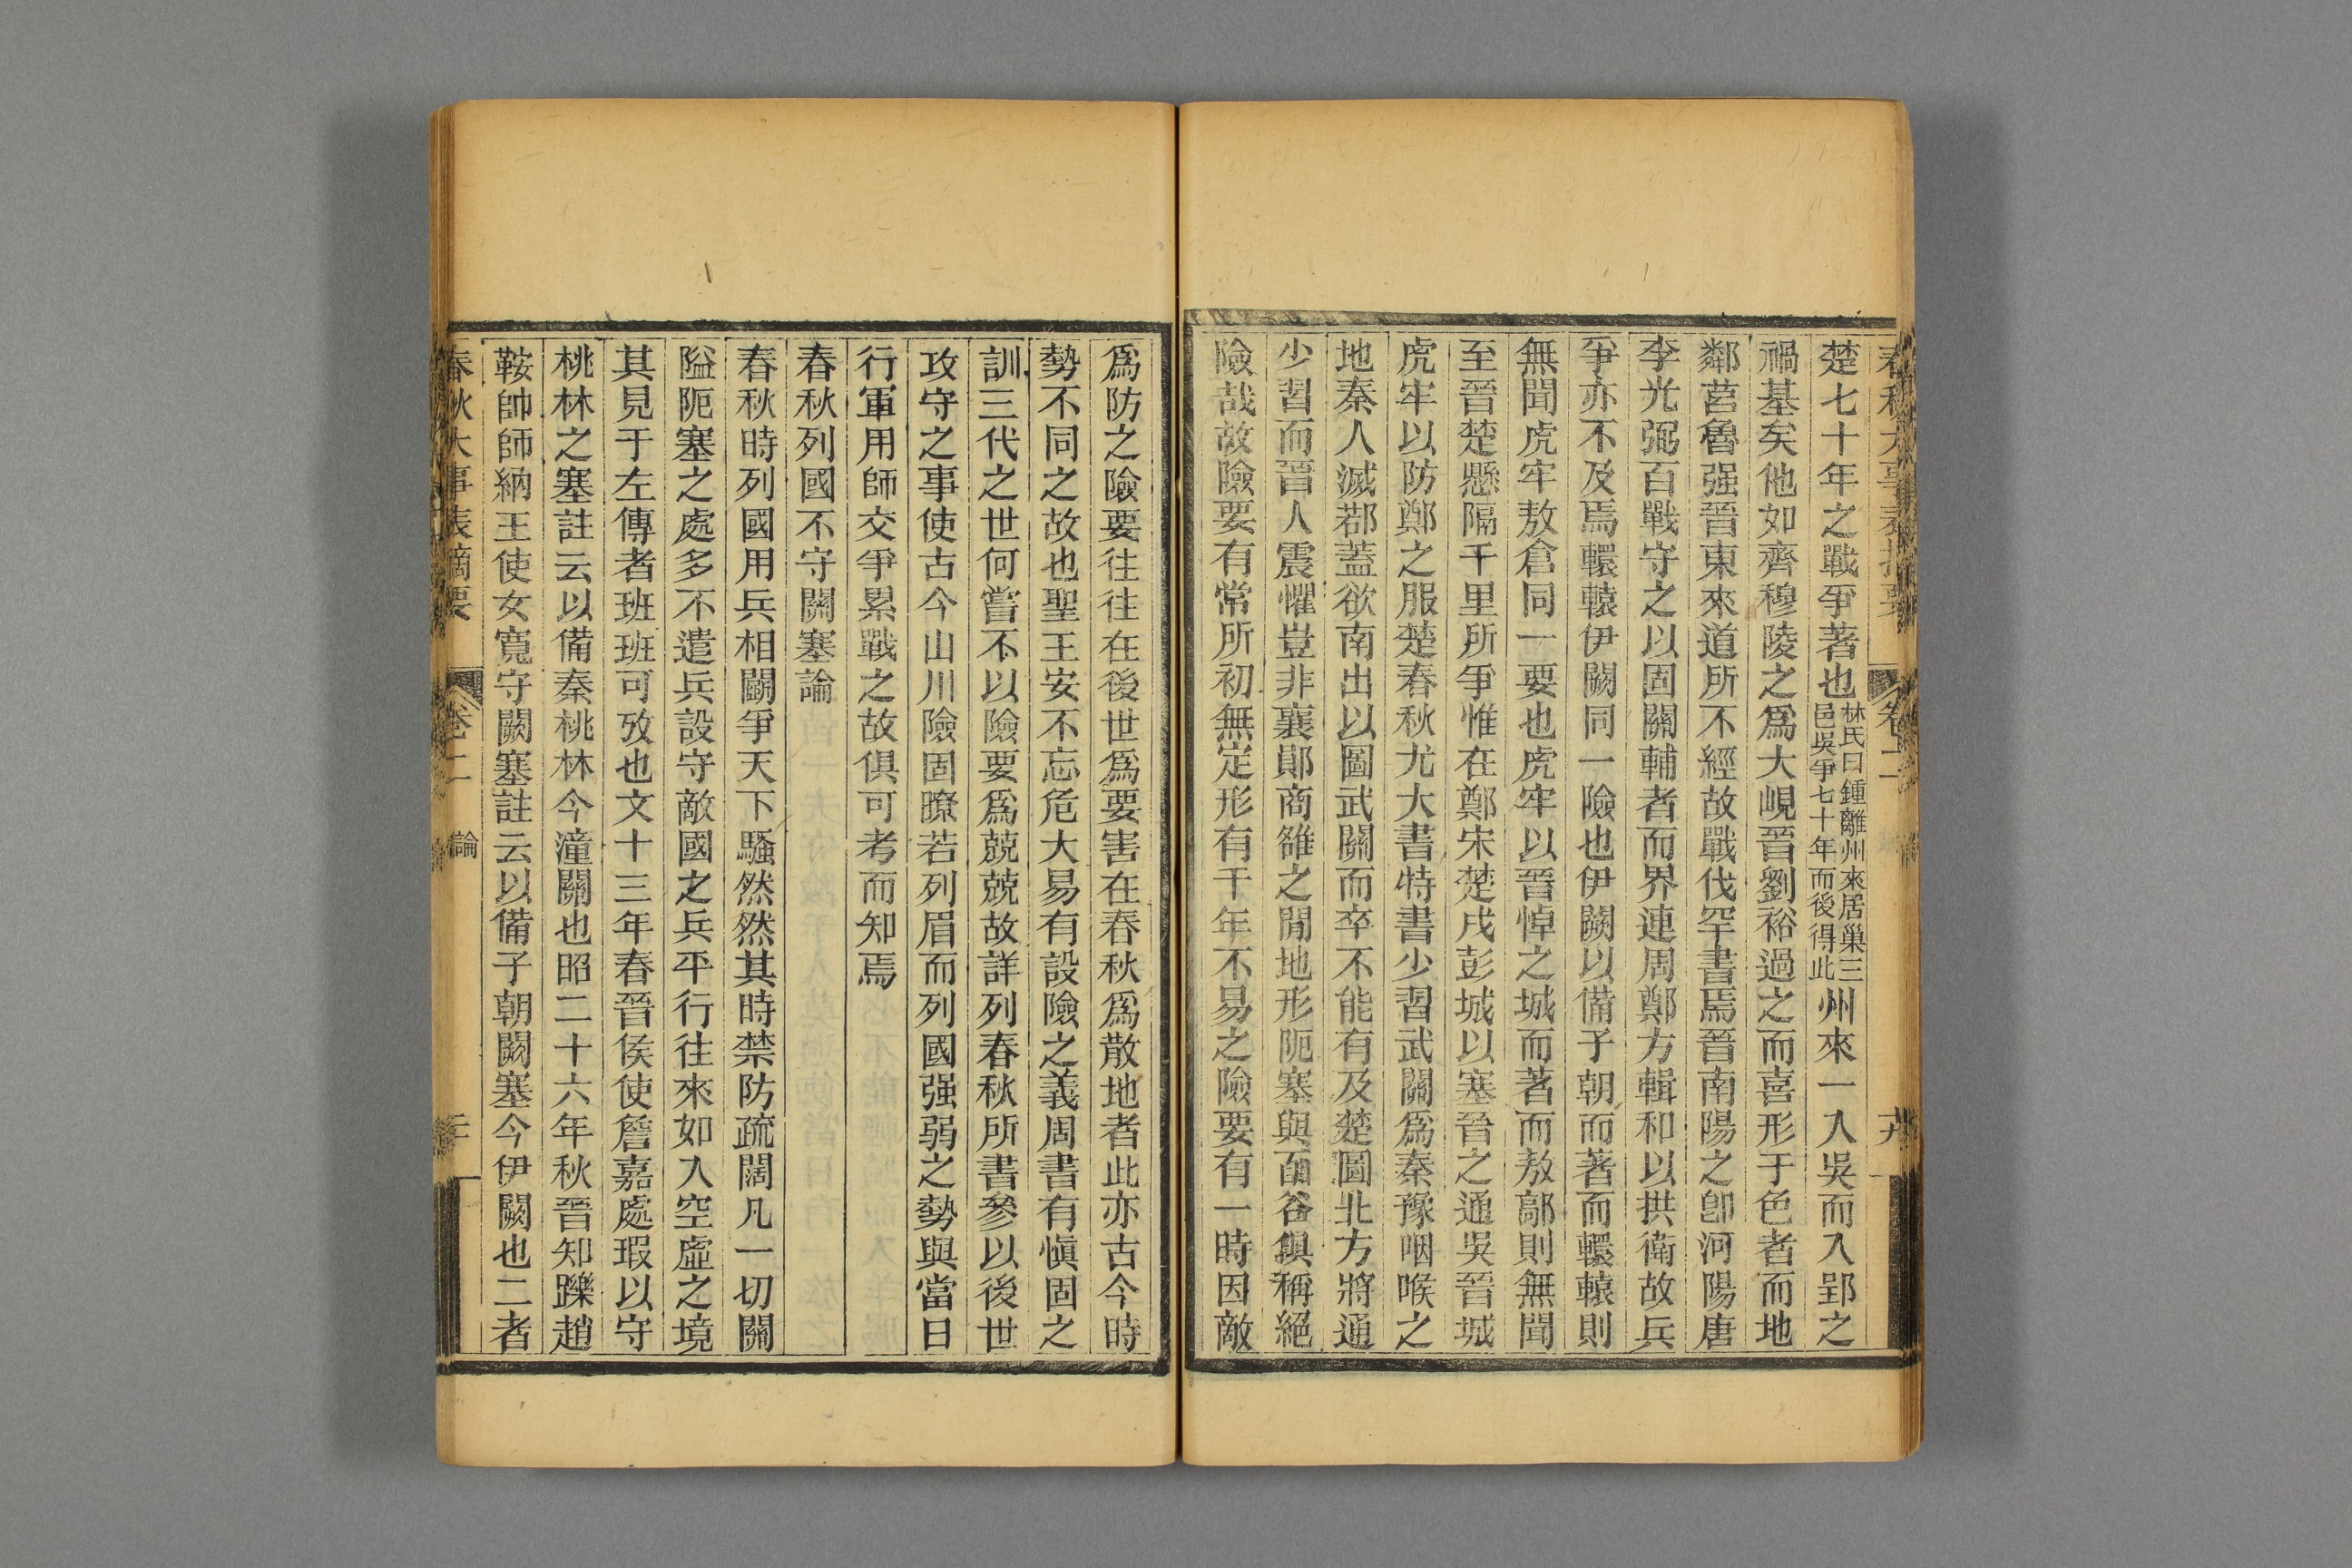 春秋大事表摘要
卷二
楚七十年之戰爭著也林氏曰鍾離州來居巢三邑吳爭七十年而後得此州來一入吳而入郢之
禍基矣他如齊穆陵之爲大峴晉劉裕過之而喜形于色者而地
鄰莒魯强晉東來道所不經故戰伐罕書焉晉南陽之卽河陽唐
李光弼百戰守之以固關輔者而界連周鄭方輯和以拱衛故兵
爭亦不及焉轘轅伊闕同一險也伊闕以備子朝而著而轘轅則
無聞虎牢敖倉同一要也虎牢以晉悼之城而著而敖鄗則無聞
至晉楚懸隔千里所爭惟在鄭宋楚戍彭城以塞晉之通吳晉城
虎牢以防鄭之服楚春秋尤大書特書少習武關爲秦豫咽喉之
地秦人滅鄀蓋欲南出以圖武關而卒不能有及楚圖北方將通
少習而晉人震懼豈非襄鄖商雒之閒地形阨塞與函谷俱稱絕
險哉故險要有常所初無定形有千年不易之險要有一時因敵
爲防之險要往往在後世爲要害在春秋爲散地者此亦古今時
勢不同之故也聖王安不忘危大易有設險之義周書有愼固之
訓三代之世何嘗不以險要爲兢兢故詳列春秋所書參以後世
攻守之事使古今山川險固瞭若列眉而列國强弱之勢與當日
行軍用師交爭累戰之故俱可考而知焉
春秋列國不守關塞論
春秋時列國用兵相鬬爭天下騷然然其時禁防疏闊凡一切關
隘阨塞之處多不遣兵設守敵國之兵平行往來如入空虛之境
其見于左傳者班班可攷也文十三年春晉侯使詹嘉處瑕以守
桃林之塞註云以備秦桃林今潼關也昭二十六年秋晉知躒趙
鞅帥師納王使女寬守闕塞註云以備子朝闕塞今伊闕也二者
春秋大事表摘要
卷二 論